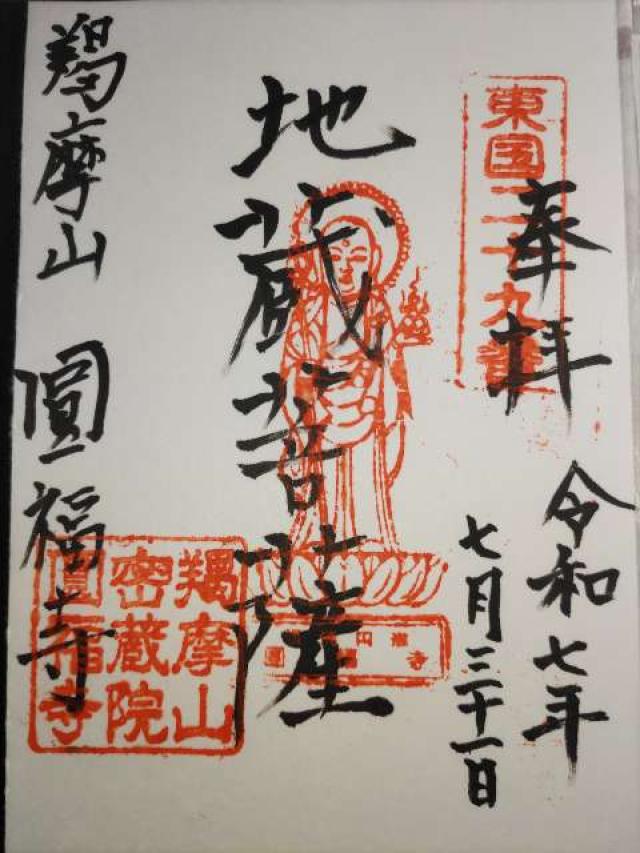 奉拝
令和七年
七月三十一日
地蔵菩薩
羯摩山 圓福寺
東国二十九番
羯摩山
密蔵院
圓福寺